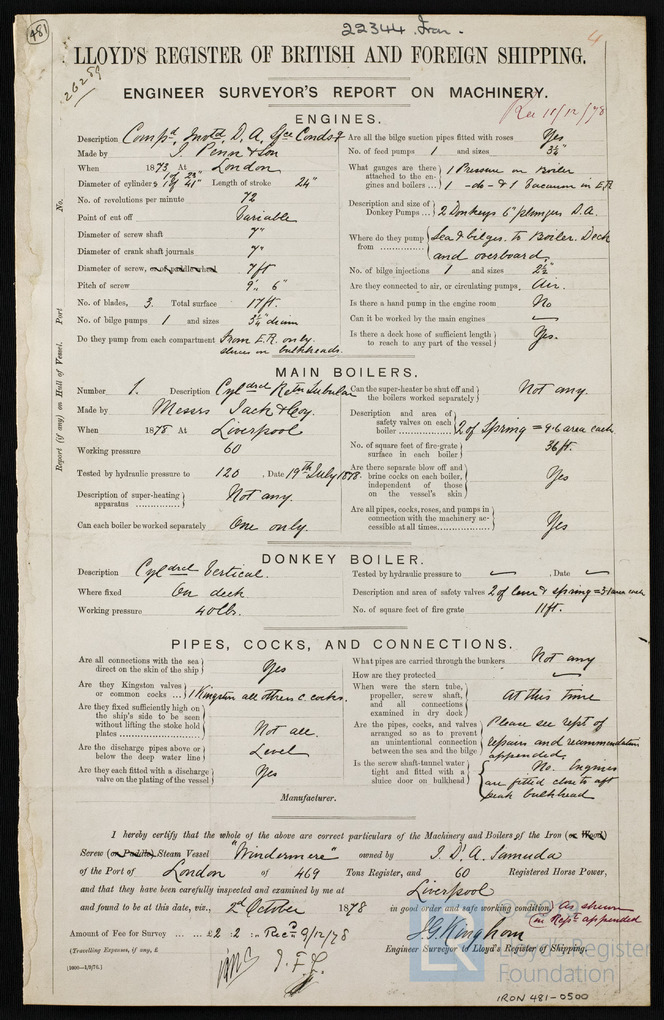 481
22344 Iron.
4
26289
LLOYD'S REGISTER OF BRITISH AND FOREIGN SHIPPING.
ENGINEER SURVEYOR'S REPORT ON MACHINERY.
Rec 11/12/78
ENGINES.
Description Compd, Invtd D. A. Sfce Condsg
Made by J. Penn & Son
When 1873 At London
Diameter of cylinders 1 of 23" 1 of 41" Length of stroke 24"
No. of revolutions per minute 72
Point of cut off Variable
Diameter of screw shaft 7"
Diameter of crank shaft journals 7"
Diameter of screw, or of paddle wheel 7ft
Pitch of screw 9', 6"
No. of blades, 3. Total surface 17ft.
No. of bilge pumps 1 and sizes 3¼" diam
Do they pump from each compartment From E.R. only.
sluices in bulkheads.
Are all the bilge suction pipes fitted with roses Yes
No. of feed pumps 1 and sizes 3¼"
What gauges are there attached to the engines and boilers ... 1 Pressure on Boiler
1 -do- & 1 Vacuum in E.R.
Description and size of Donkey Pumps ... 2 Donkeys 6" plungers D.A.
Where do they pump from Sea & bilges. To Boiler. Deck
and overboard.
No. of bilge injections 1 and sizes 2½"
Are they connected to air, or circulating pumps, Air.
Is there a hand pump in the engine room No
Can it be worked by the main engines
Is there a deck hose of sufficient length to reach to any part of the vessel Yes.
Report (if any) on Hull of Vessel. Port No.
MAIN BOILERS.
Number 1. Description Cyldrcl Retn Tubular
Made by Messrs Jack & Coy.
When 1878 At Liverpool
Working pressure 60
Tested by hydraulic pressure to 120, Date 19th July 1878.
Description of super-heating apparatus Not any.
Can each boiler be worked separately One only.
Can the super-heater be shut off and the boilers worked separately Not any.
Description and area of safety valves on each boiler 2 of Spring = 9.6 area each
No. of square feet of fire-grate surface in each boiler 36ft.
Are there separate blow off and brine cocks on each boiler, independent of those on the vessel's skin Yes
Are all pipes, cocks, roses, and pumps in connection with the machinery accessible at all times Yes
DONKEY BOILER.
Description Cyldrcl Vertical.
Where fixed On deck
Working pressure 40lbs.
Tested by hydraulic pressure to , Date
Description and area of safety valves 2 of lever & spring = 3.1 area each
No. of square feet of fire grate 11ft.
PIPES, COCKS, AND CONNECTIONS.
Are all connections with the sea direct on the skin of the ship Yes
Are they Kingston valves or common cocks ... 1 Kingston all others c. cocks.
Are they fixed sufficiently high on the ship's side to be seen without lifting the stoke hold plates Not all.
Are the discharge pipes above or below the deep water line Level
Are they each fitted with a discharge valve on the plating of the vessel Yes
What pipes are carried through the bunkers Not any
How are they protected
When were the stern tube, propeller, screw shaft, and all connections examined in dry dock At this time
Are the pipes, cocks, and valves arranged so as to prevent an unintentional connection between the sea and the bilge Please see rept of
repairs and recommendation
appended.
Is the screw shaft-tunnel water tight and fitted with a sluice door on bulkhead No. Engines
are fitted close to aft
peak bulkhead
Manufacturer.
I hereby certify that the whole of the above are correct particulars of the Machinery and Boilers of the Iron (or Wood)
Screw (or Paddle) Steam Vessel "Windermere" owned by J. D'A. Samuda
of the Port of London of 469 Tons Register, and 60 Registered Horse Power,
and that they have been carefully inspected and examined by me at Liverpool
and found to be at this date, viz., 2d October 1878 in good order and safe working condition, as shewn
in Rept appended
Amount of Fee for Survey ... ... £2 : 2 : Recd 9/12/78
J G Kingham
Engineer Surveyor to Lloyd's Register of Shipping.
(Travelling Expenses, if any, £
J. F. L.
LR
Lloyd's Register
Foundation
IRON 481-0500